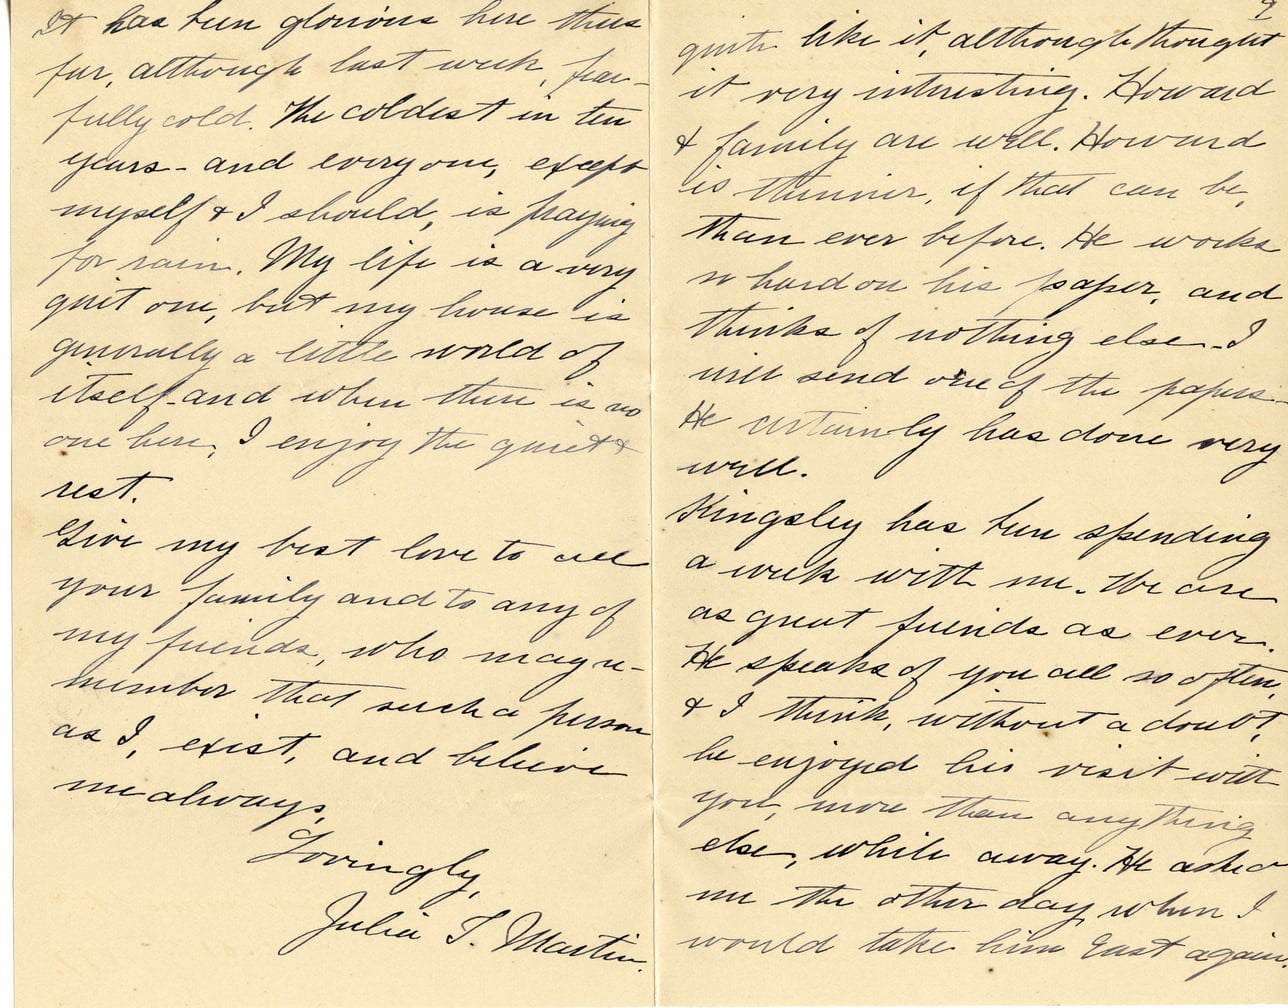 It has been glorious here thus
far, although last week, fear-
fully cold. The coldest in ten
years - and everyone, except
myself & I should, is praying
for rain. My life is a very
quiet one, but my house is
generally a little world of
itself - and when there is no
one here, I enjoy the quiet &
rest.
Give my best love to all
your family and to any of
my friends, who may re-
member that such a person
as I, exist, and believe
me always,
Lovingly,
Julia T. Martin.
4
quite like it, although thought
it very interesting. Howard
& family are well. Howard
is thinner, if that can be,
than ever before. He works
so hard on his paper, and
thinks of nothing else - I
will send one of the papers -
He certainly has done very
well.
Kingsley has been spending
a week with me. We are
as great friends as ever.
He speaks of you all so often,
& I think, without a doubt,
he enjoyed his visit with
you, more than anything
else, while away. He asked
me the other day, when I
would take him East again.